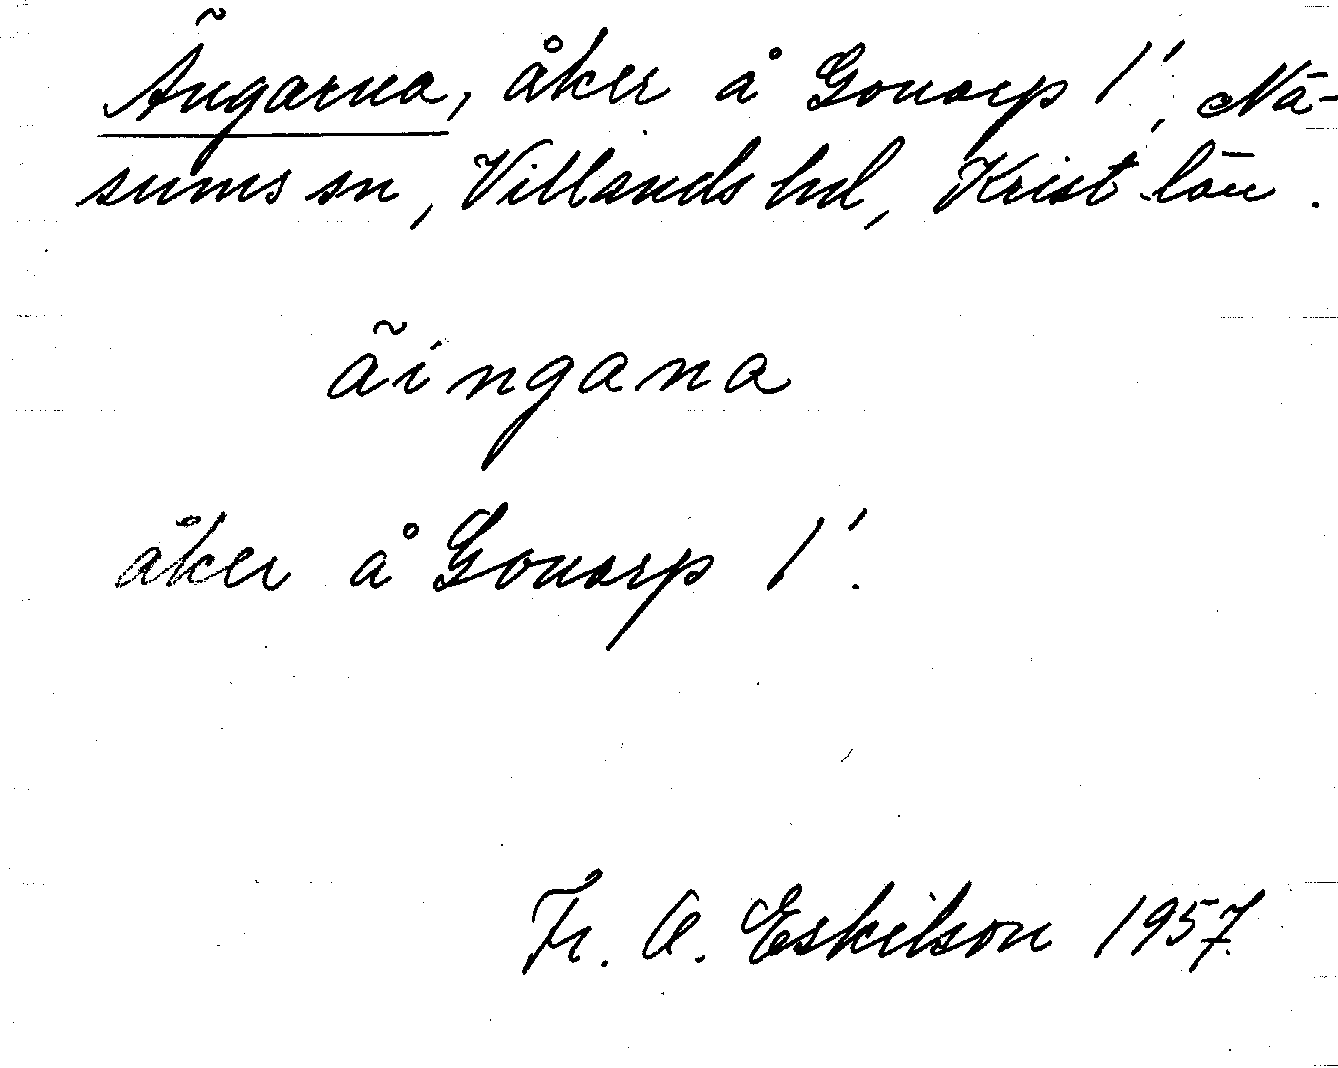 Ängarna, åker å Gonarp 1', Nä-
sums sn, Villands hd, Krist län.
äingana
åker å Gonarp 1'.
Fr. A. Eskilson 1957.